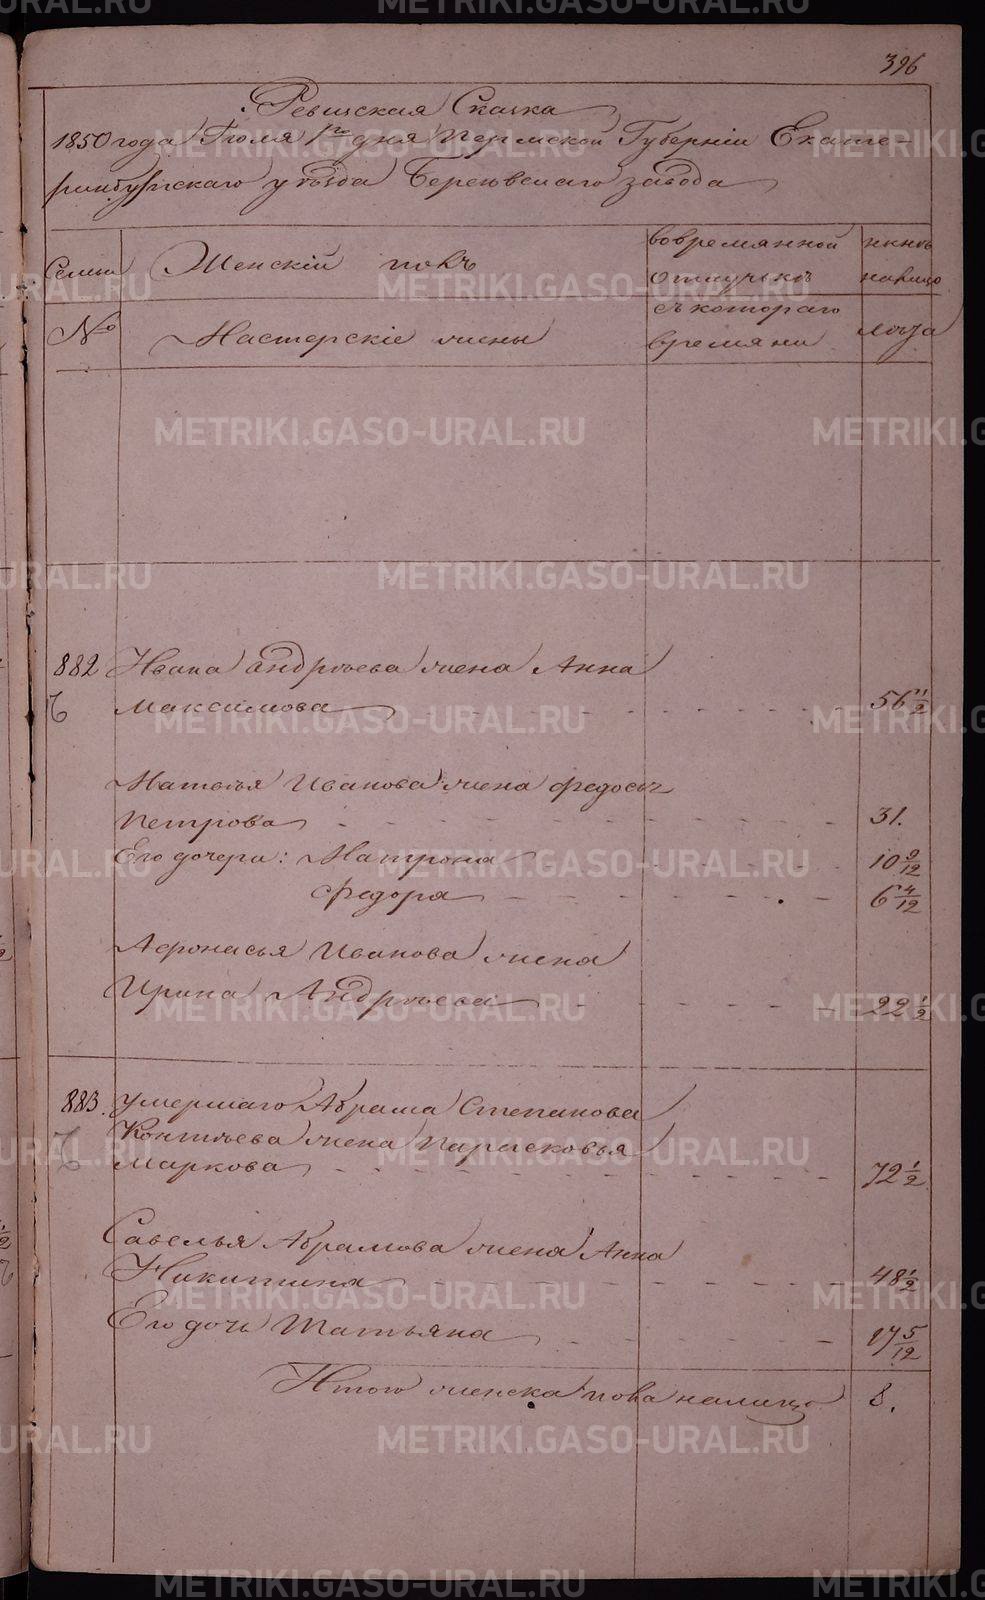 396
Ревизская Сказка
1850 года Июля 1го дня Пермской Губернiи Екате-
ринбургскаго уѣзда Березовскаго завода
Семьи Женскiй полъ вовремянной нынѣ
отлучкѣ налицо
№ Мастерскiе жены съ котораго лѣта
времяни
882 Ивана Андрѣева жена Анна
Максимова 56 1/2
Матвѣя Иванова жена Федосья
Петрова 31.
Его дочери: Матрона 10 9/12
Федора 6 4/12
Афонасья Иванова жена
Ирина Андрѣева 22 1/2
883. умершаго Абрама Степанова
жена Парасковья
Маркова 72 1/2
Савелья Абрамова жена Анна
Никитина 48 1/2
Его дочь Татьяна 17 5/12
Итого женска пола налицо 8.
METRIKI.GASO-URAL.RU